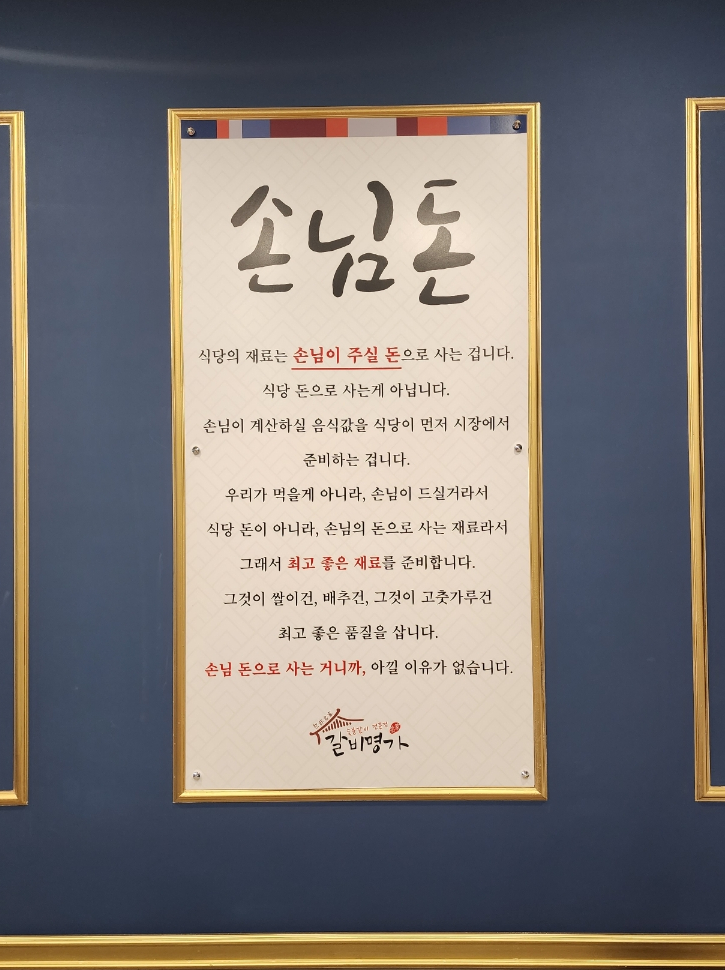 손님돈
식당의 재료는 손님이 주실 돈으로 사는 겁니다.
식당 돈으로 사는게 아닙니다.
손님이 계산하실 음식값을 식당이 먼저 시장에서
준비하는 겁니다.
우리가 먹을게 아니라, 손님이 드실거라서
식당 돈이 아니라, 손님의 돈으로 사는 재료라서
그래서 최고 좋은 재료를 준비합니다.
그것이 쌀이건, 배추건, 그것이 고춧가루건
최고 좋은 품질을 삽니다.
손님 돈으로 사는 거니까, 아낄 이유가 없습니다.
갈비명가